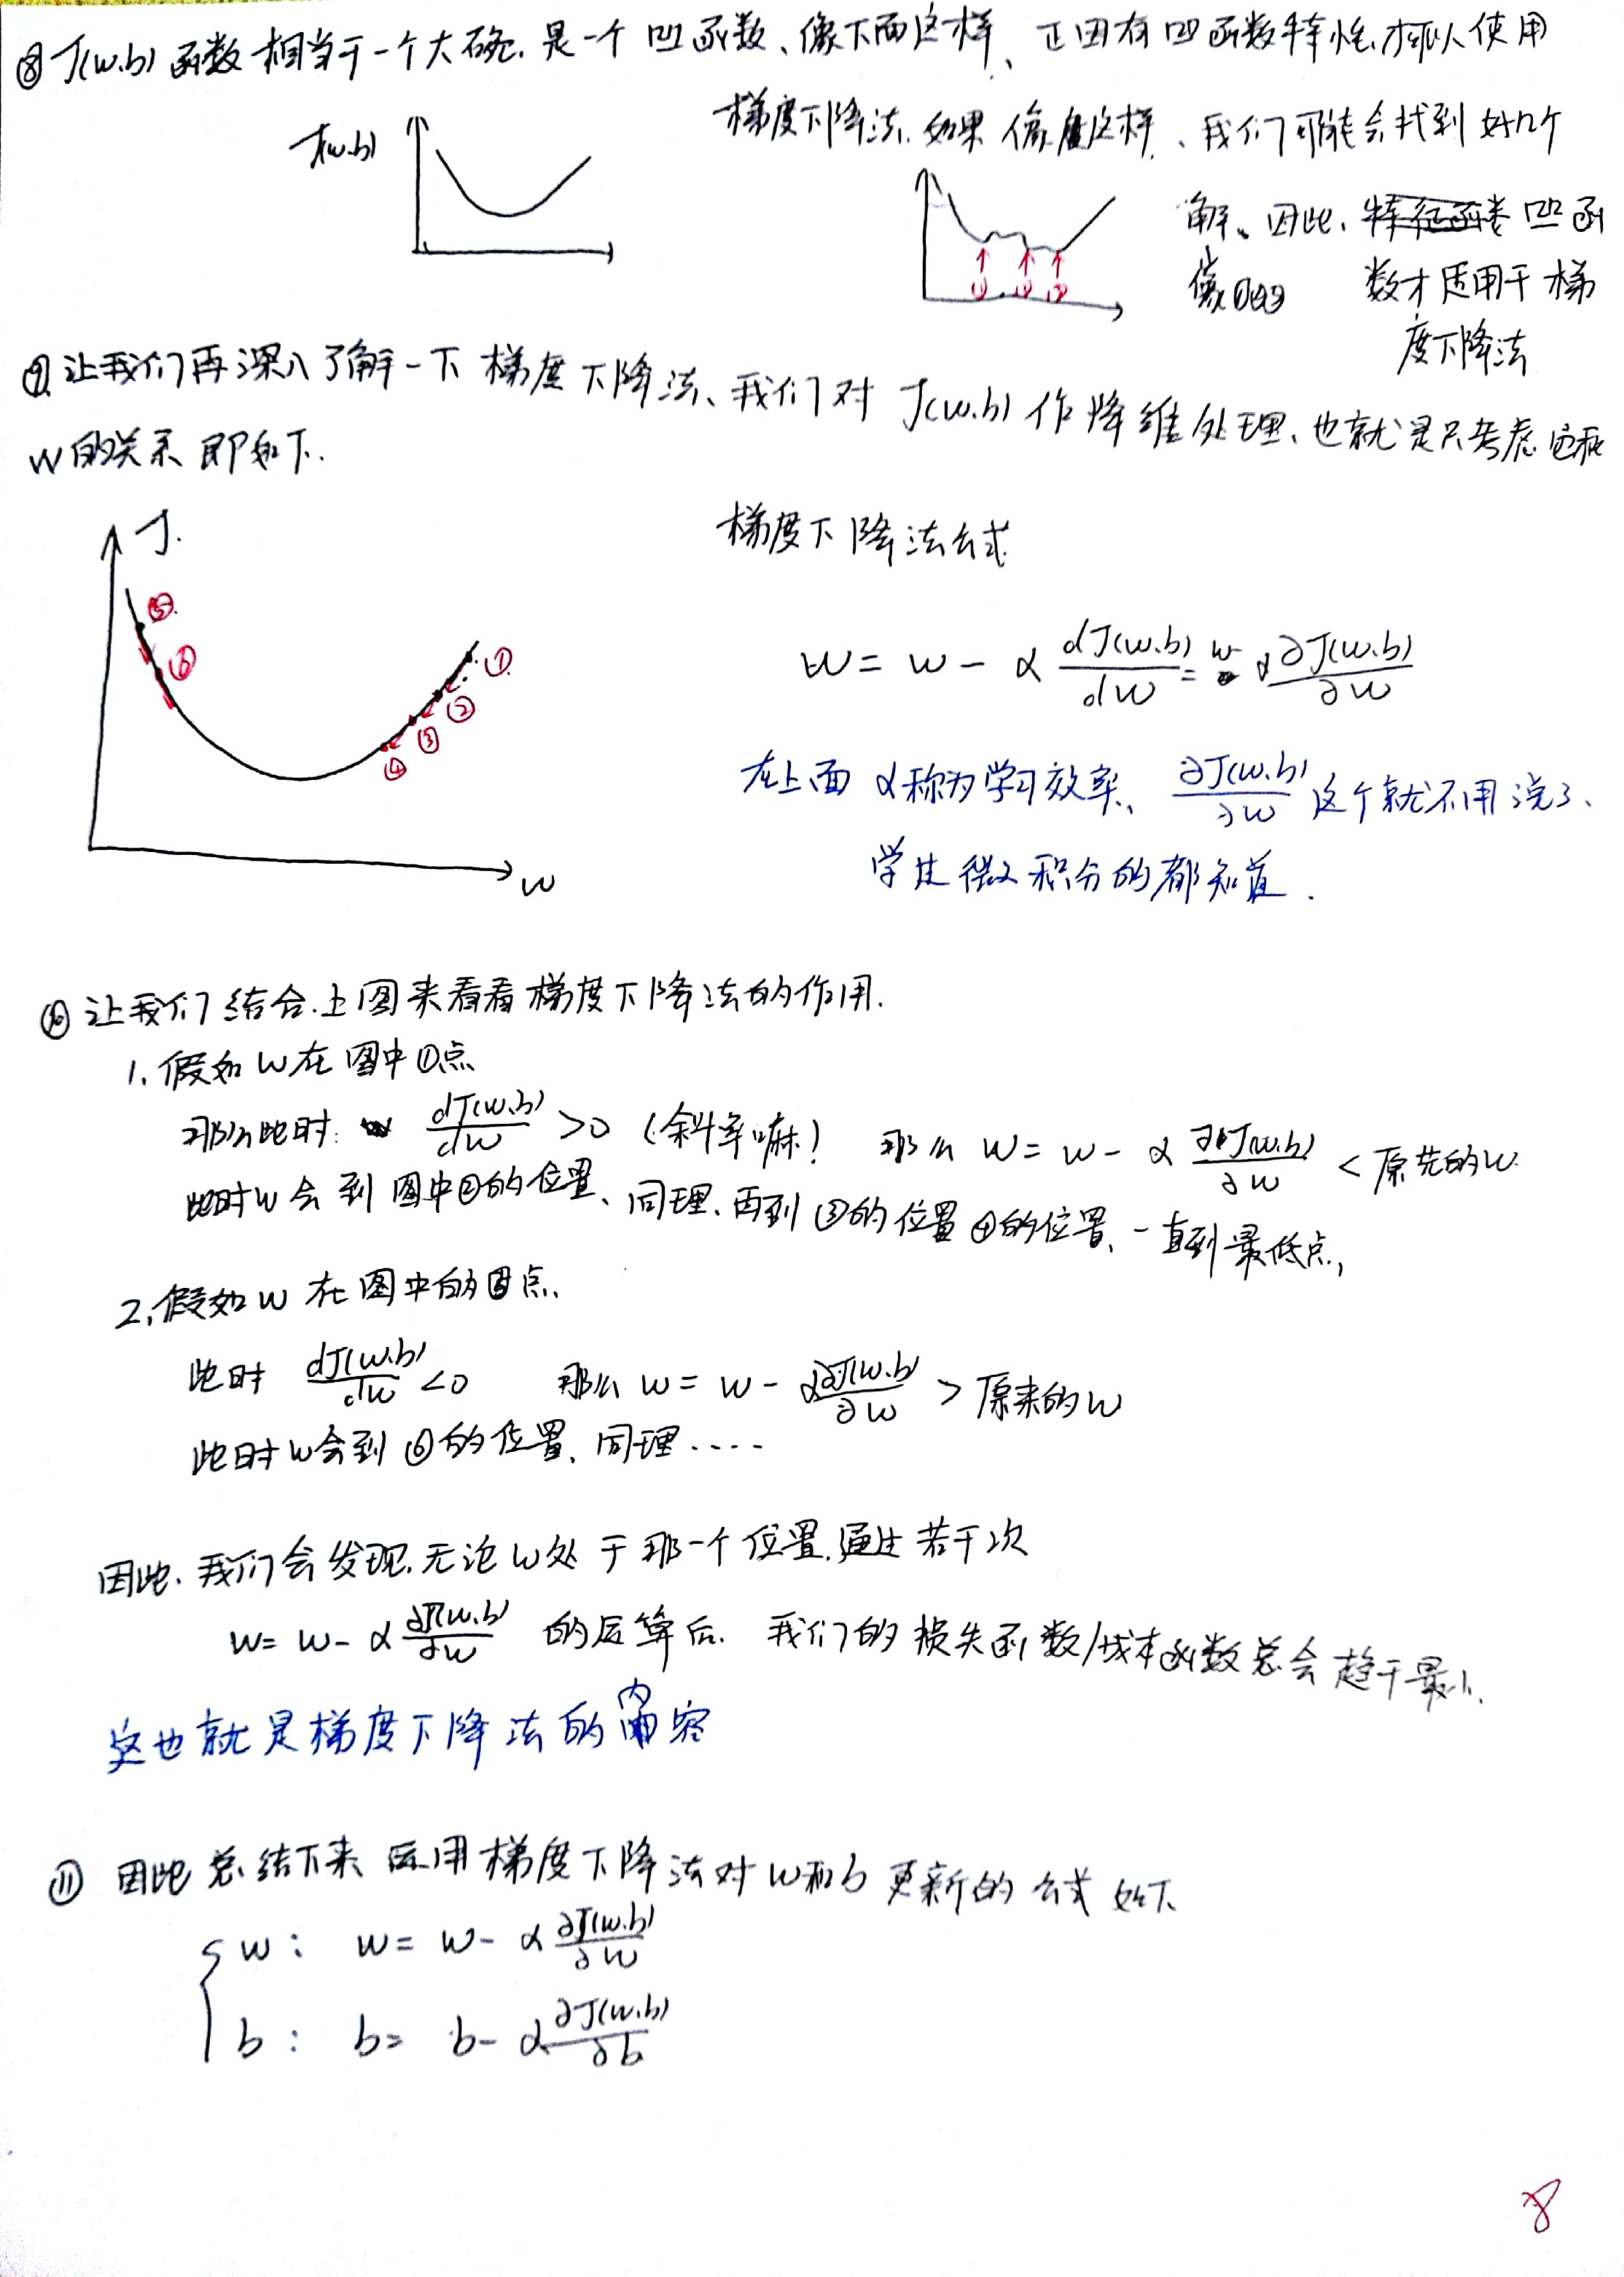 ⑧ J(w.b) 函数相当于一个大碗. 是一个凹函数、像下面这样、正因有凹函数特性,才可以使用
梯度下降法. 如果像这样、我们可能会找到好几个
J(w.b)
解、因此, 凹函
像①②③ 数才适用于梯
① ② ③
度下降法
⑨ 让我们再深入了解一下梯度下降法、我们对 J(w.b) 作降维处理、也就是只考虑它和
w的关系 即如下.
梯度下降法公式
J.
⑤ ⑥ ① ② ③ ④
w
w = w - α dJ(w.b)/dw = w - α ∂J(w.b)/∂w
在上面 α称为学习效率、 ∂J(w.b)/∂w 这个就不用说了、
学过微积分的都知道.
⑩ 让我们结合上图来看看梯度下降法的作用.
1. 假如w在图中①点
那么此时: dJ(w.b)/dw >0 (斜率嘛! 那么 w = w - α ∂J(w.b)/∂w < 原先的w.
此时w会到图中②的位置、同理.再到③的位置④的位置、一直到最低点,
2. 假如w在图中的⑤点.
此时 dJ(w.b)/dw <0 那么 w = w - α∂J(w.b)/∂w > 原来的w
此时w会到⑥的位置、同理....
因此.我们会发现.无论w处于那一个位置.通过若干次
w= w- α ∂J(w.b)/∂w 的运算后. 我们的损失函数/成本函数总会趋于最小.
这也就是梯度下降法的内容
⑪ 因此总结下来 运用梯度下降法对w和b更新的公式如下
w: w= w- α ∂J(w.b)/∂w
b: b= b- α ∂J(w.b)/∂b
8